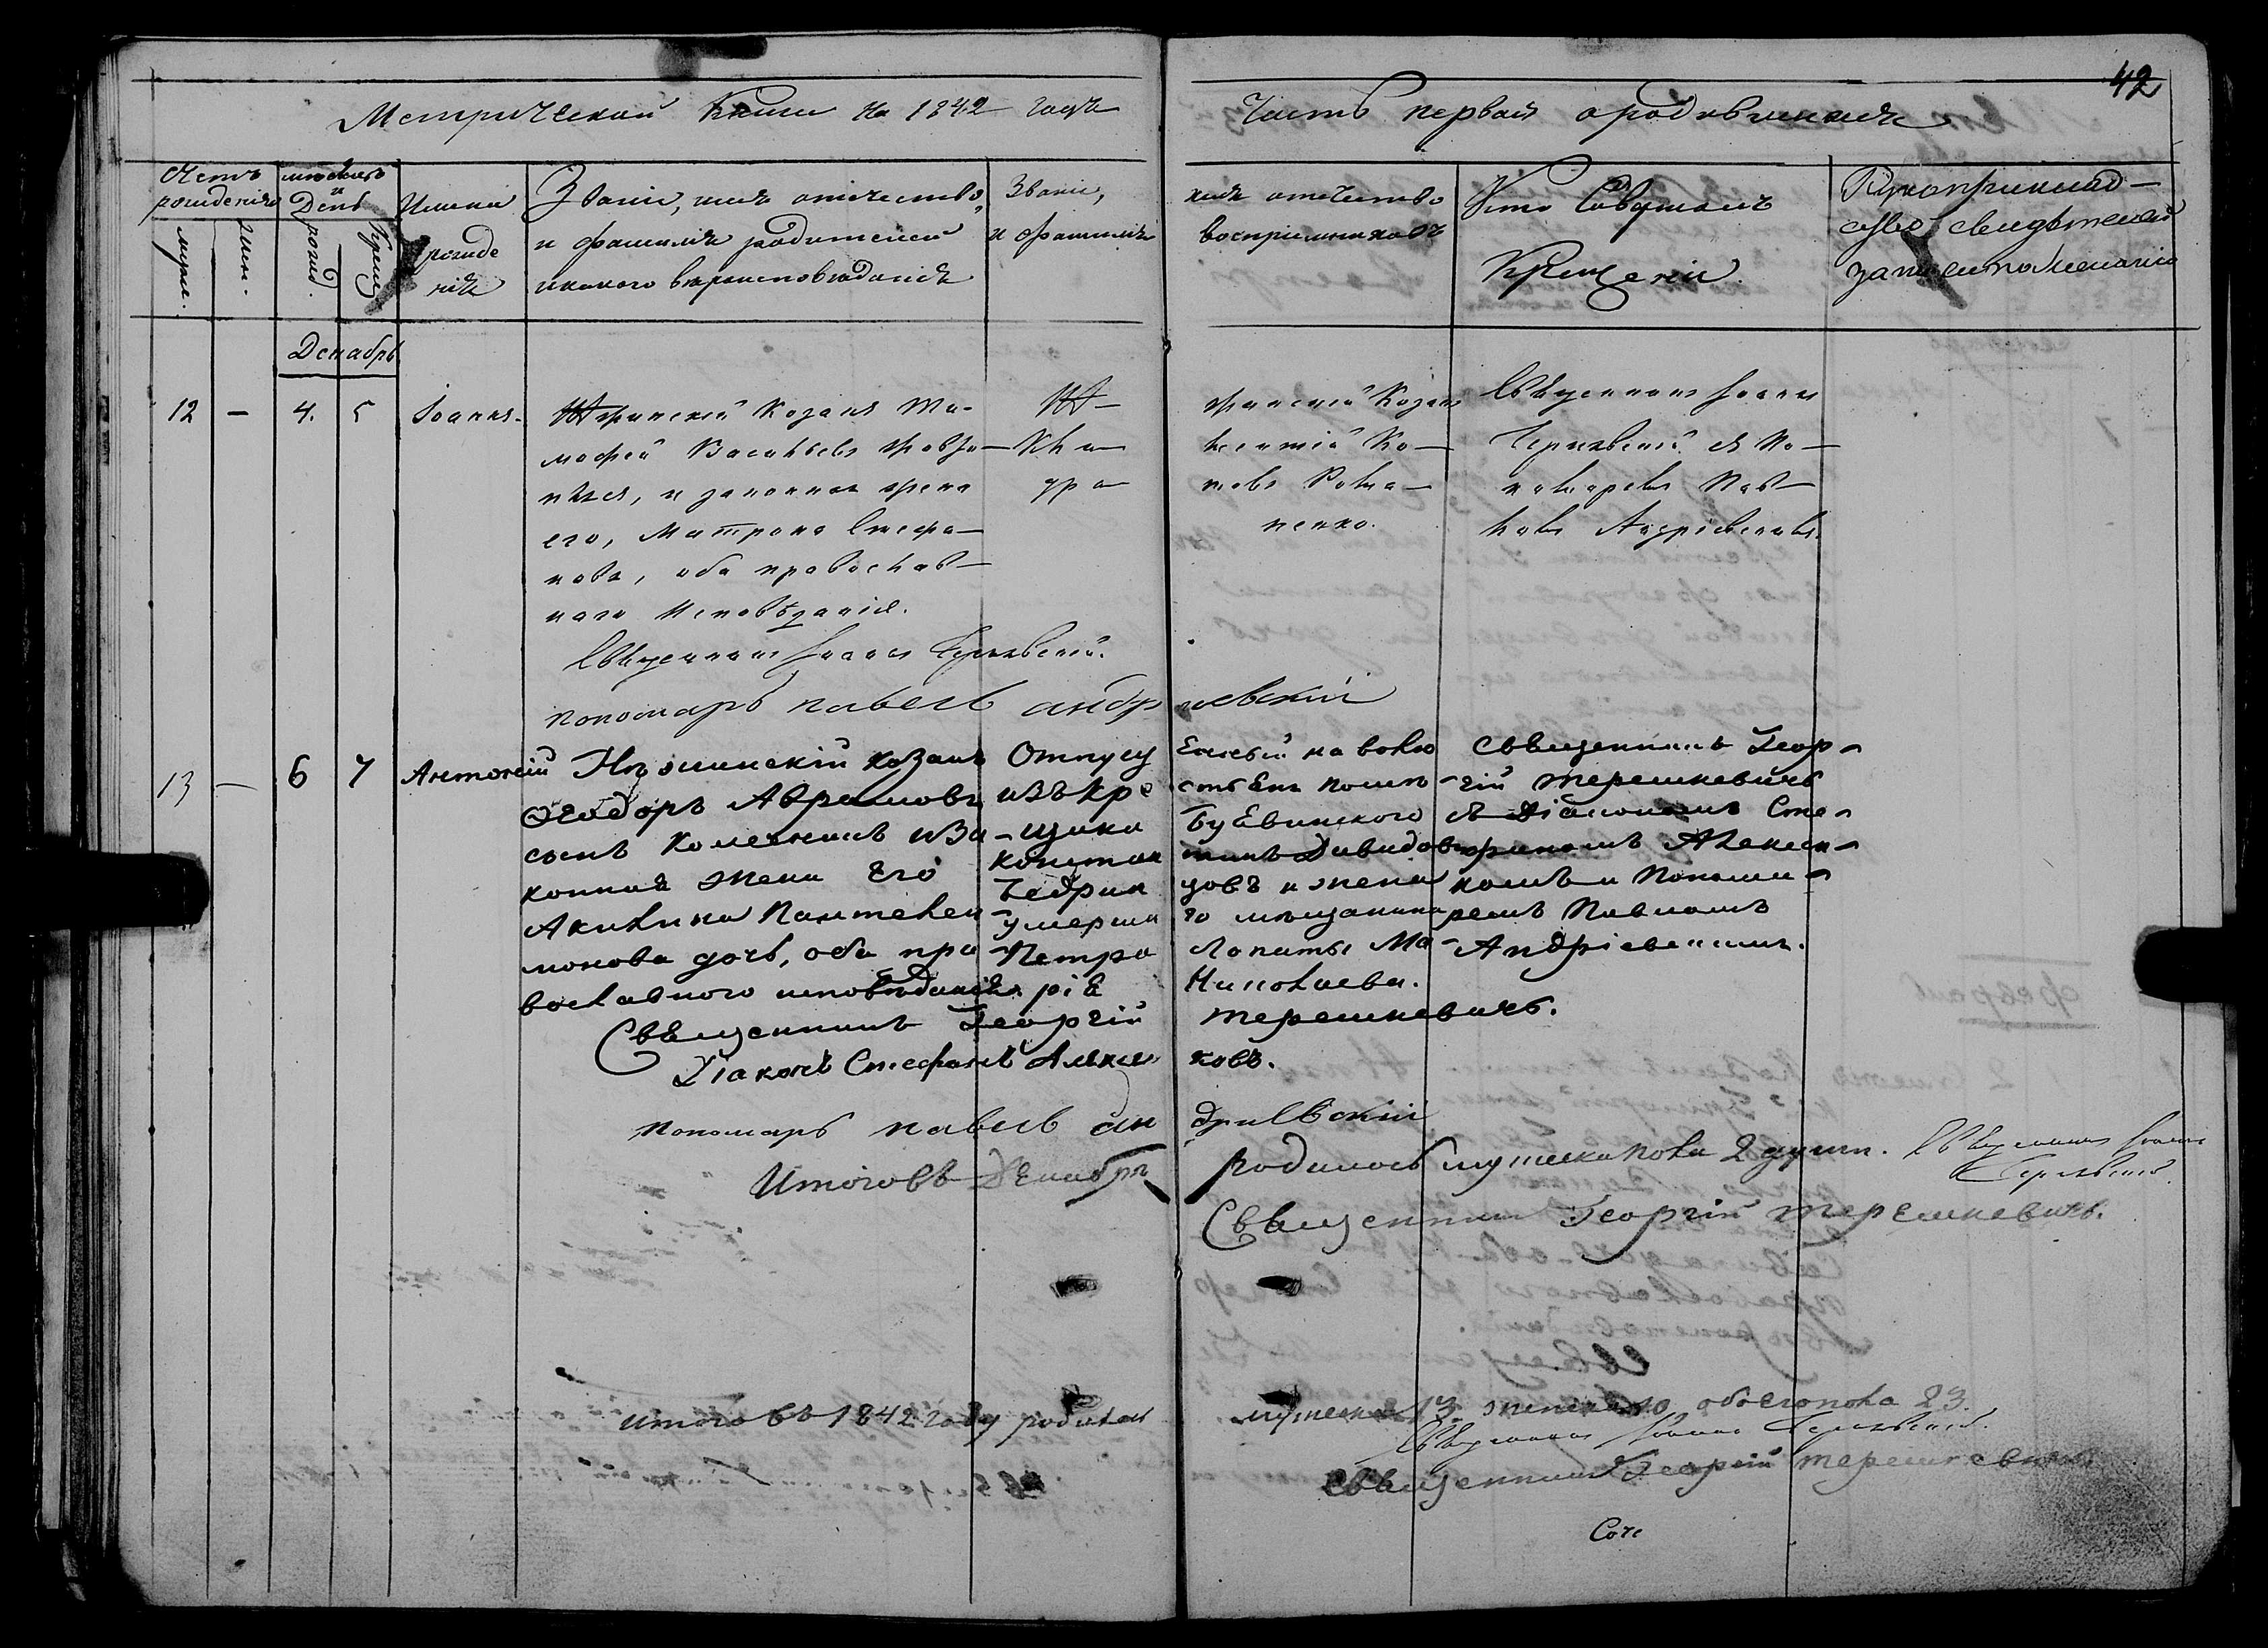 42
Метрической Книги на 1842 годъ
Часть первая о родившихся
Счетъ рожденія
мѣсяцъ и День
Имена рожде нія
Званіе, имя отечество,
и фамилія родителей
и какого вѣроисповѣданія
Званіе,
и фамилія
имя отечество
воспріемниковъ
Кто Совершалъ
Крещеніе
Рукоприклад-
ство свидѣтелей
записи по желанію
муже.
жен.
рожд.
Крещ.
Декабрь
12 — 4. 5 Іоаннъ.
козакъ Ти-
мофей Васильевъ
и законная жена
его, Матрона Стефа-
нова, оба православ-
наго Исповѣданія.
Козакъ
Священникъ Іоаннъ
съ По-
номаремъ Пав-
ломъ Андріевскимъ.
Священникъ Іоаннъ
пономарь павелъ андріевскій
13 — 6 7 Антоній
Нѣжинскій козакъ
Ѳеодоръ Аврамовъ
сынъ и за-
конная жена его
Акилина Пантелей-
монова дочь, оба пра-
вославного исповѣданія.
Отпущенный на волю
изъ кре
умерша
го мѣщанина
Петра Лопаты Ма-
рія Николаева.
Священникъ Геор-
гій Терешкевичъ
съ Діакономъ Сте-
фаномъ Алексѣ-
комъ и Понома-
ремъ Павломъ
Андріевскимъ.
Священникъ Георгій Терешкевичъ.
Діаконъ Стефанъ
пономарь павелъ андріевскій
Итого въ Декабрѣ родилось мужеска пола 2 души. Священникъ Іоаннъ
Священникъ Георгій Терешкевичъ.
итого въ 1842 году родилось мужеска 13 женска 10 обоего пола 23.
Священникъ Іоаннъ
Священникъ Георгій Терешкевичъ.